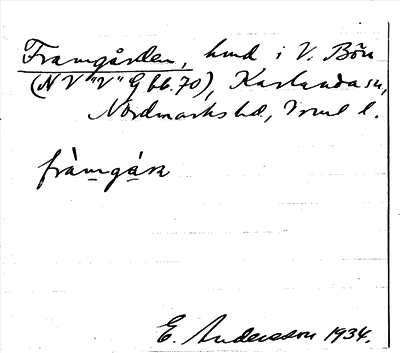 Framgården, hmd i V. Bön
(NV "V" Gbb. 70), Karlanda sn,
Nordmarks hd, Vrml l.
fràmgása
E. Andersson 1934.